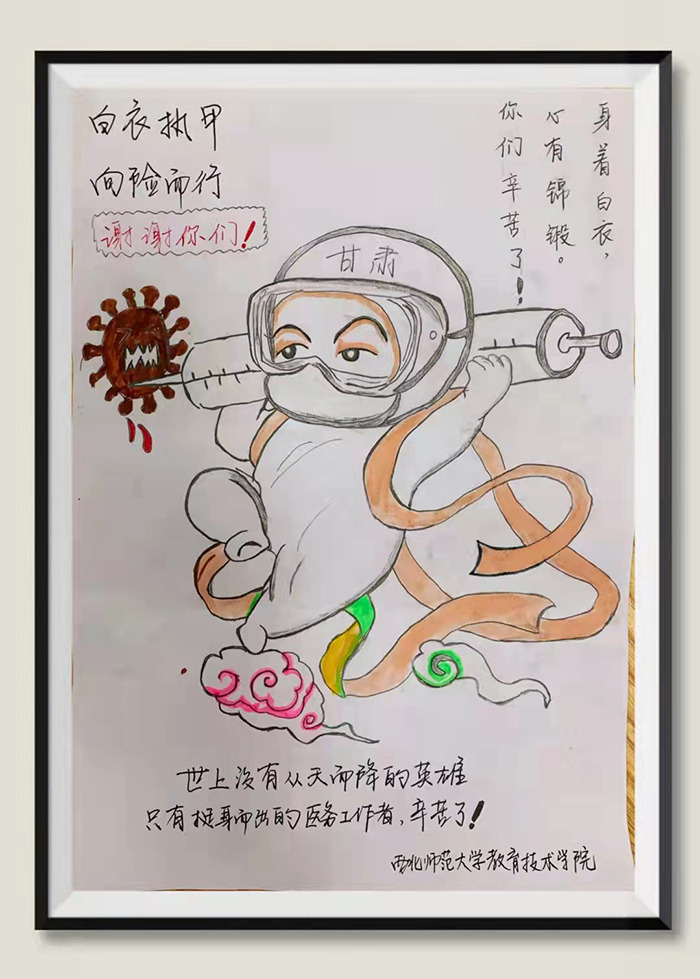 白衣执甲
向险而行
谢谢你们!
身着白衣,
心有锦锻。
你们辛苦了!
甘肃
世上没有从天而降的英雄
只有挺身而出的医务工作者,辛苦了!
西北师范大学教育技术学院